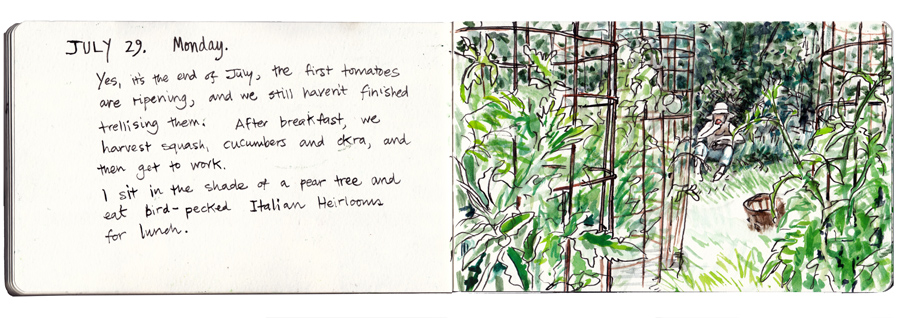 JULY 29. Monday.
Yes, it's the end of July, the first tomatoes
are ripening, and we still haven't finished
trellising them. After breakfast, we
harvest squash, cucumbers and okra, and
then get to work.
I sit in the shade of a pear tree and
eat bird-pecked Italian Heirlooms
for lunch.